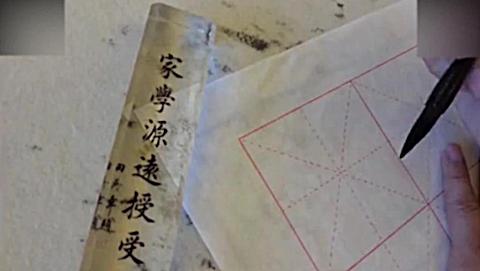 家學源遠授受